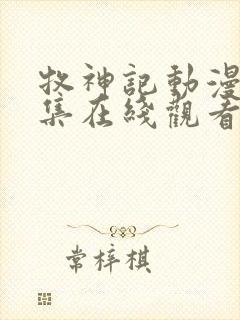 牧神記動漫
集在綫觀看
常梓棋